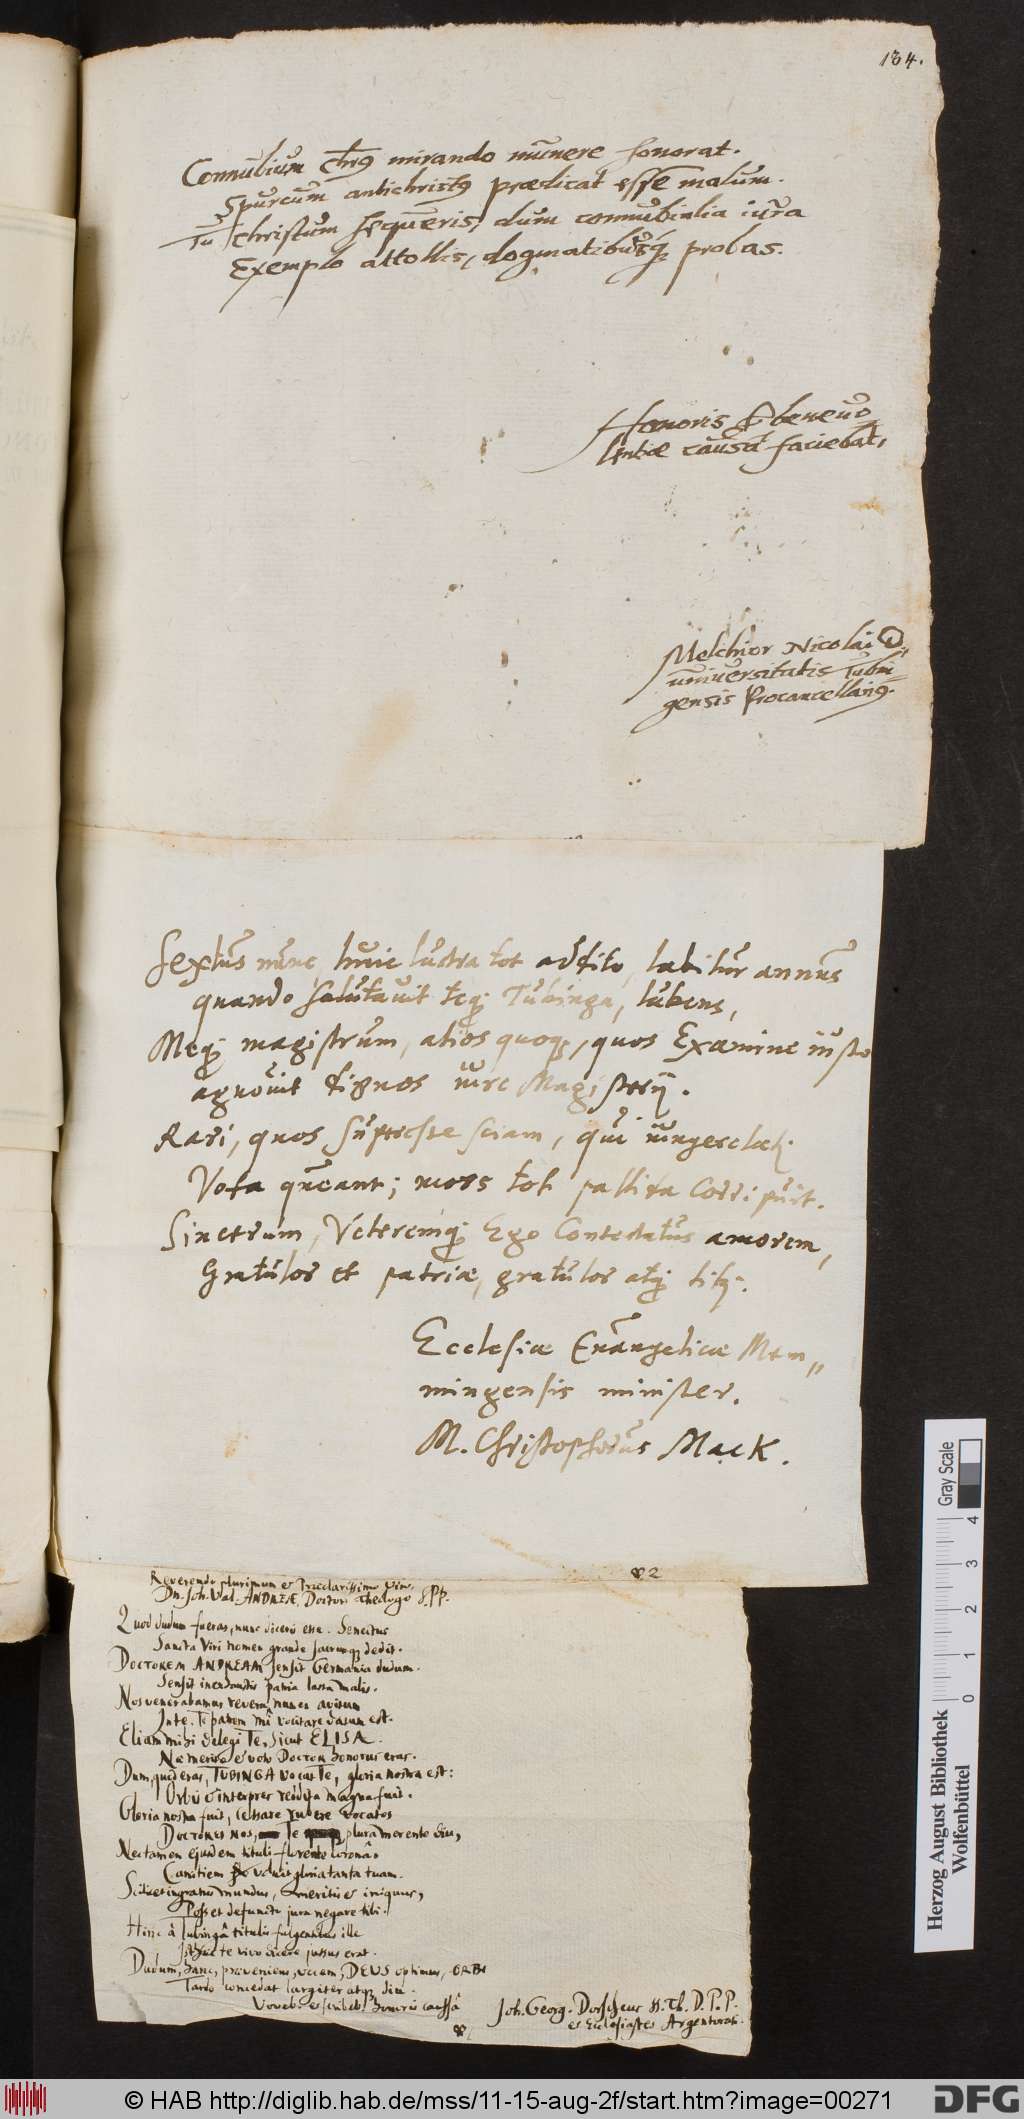 134.
Connubium chrūs mirando munere honorat.
Spurcum antichristus prædicat esse malum.
Tu christum sequeris, dum connubialia iura
Exemplo attollis, dogmatibusq; probas.
Honoris & benevo
lentiæ causa faciebat,
Melchior Nicolai D.
universitatis Tubin
gensis Procancellarius.
Sextus nunc, huic lustra tot addito, labitur annus
quando salutavit teq; Tubinga, lubens,
Meq; magistrum, alios quoq;, quos Examine iusto
agnovit dignos iure Magisterij.
Rari, quos superesse sciam, qui iungere
Vota queant; mors tot pallida corripuit.
Sincerum, Veteremq; Ego Contestatus amorem,
Gratulor et patriæ, gratulor atq; tibi.
Ecclesiæ Evangelicæ Mem„
mingensis minister.
M. Christophorus Mack.
2
Reverendo plurimum et Præclarissimo Viro,
Dn. Joh. Val. ANDREÆ, Doctori Theologo S. PP.
Quod dudum fueras, nunc diceris esse. Senectus
Sancta Viri nomen grande sacrumq; dedit.
DOCTOREM ANDREAM sensit Germania dudum.
Sensit patria malis.
Nos venerabamur revera, nunc
In te. Te patrem mi vocitare datum est.
Eliam mihi delegi Te, sicut ELISA.
Næ merito et voto DOCTOR honorus eras.
Dum, quod eras, TUBINGA vocat Te, gloria nostra est:
Orbi interpres reddita magna fuit.
Gloria nostra fuit, cessare vocatos
DOCTORES NOS, Te plura merente diu,
Nec tamen ejusdem tituli florente coronâ
Canitiem gloria tanta tuam.
Scilicet ingratus mundus, meritis et iniquus,
Posset defuncto jura negare tibi.
Hinc à Tubingâ titulis fulgentibus ille
te vivo dicere jussus erat.
Dudum, hanc, præveniens, vocem, DEUS optimus, ORBI
Tardo concedat largiter atq; diu.
Vovebat et scribebat honoris caussâ
Joh. Georg. Dorscheus SS. Th. D. P. P.
et Ecclesiastes Argentorati.
Gray Scale
0 1 2 3 4
Herzog August Bibliothek
Wolfenbüttel
© HAB http://diglib.hab.de/mss/11-15-aug-2f/start.htm?image=00271
DFG